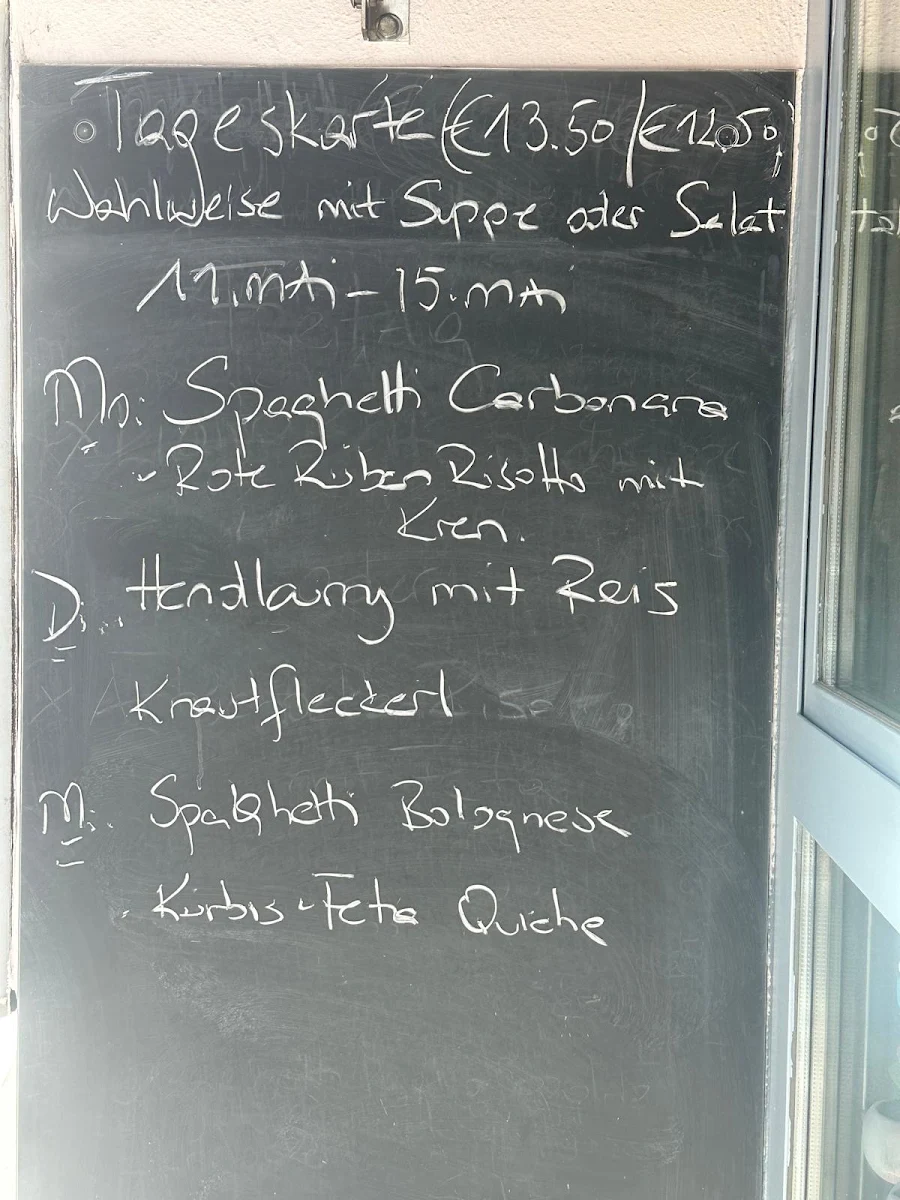 Tageskarte (€13.50/€12.50)
Wahlweise mit Suppe oder Salat
11.MAi - 15.MAi
Mo: Spaghetti Carbonara
- Rote Rüben Risotto mit
Kren.
Di: Hendlcurry mit Reis
Krautfleckerl
Mi: Spagghetti Bolognese
Kürbis-Feta Quiche